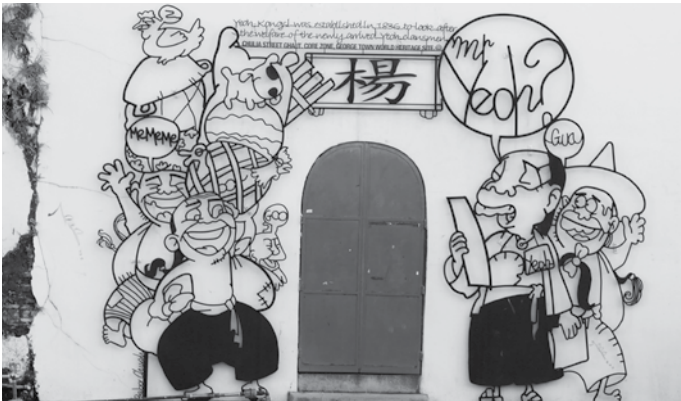 Yeoh Kongsi was established in 1836 to look after
the welfare of the newly arrived Yeoh clansmen
CHULIA STREET GHAUT, CORE ZONE, GEORGE TOWN WORLD HERITAGE SITE
楊
Mr
Yeoh?
MeMeMe
Gua
Yeoh